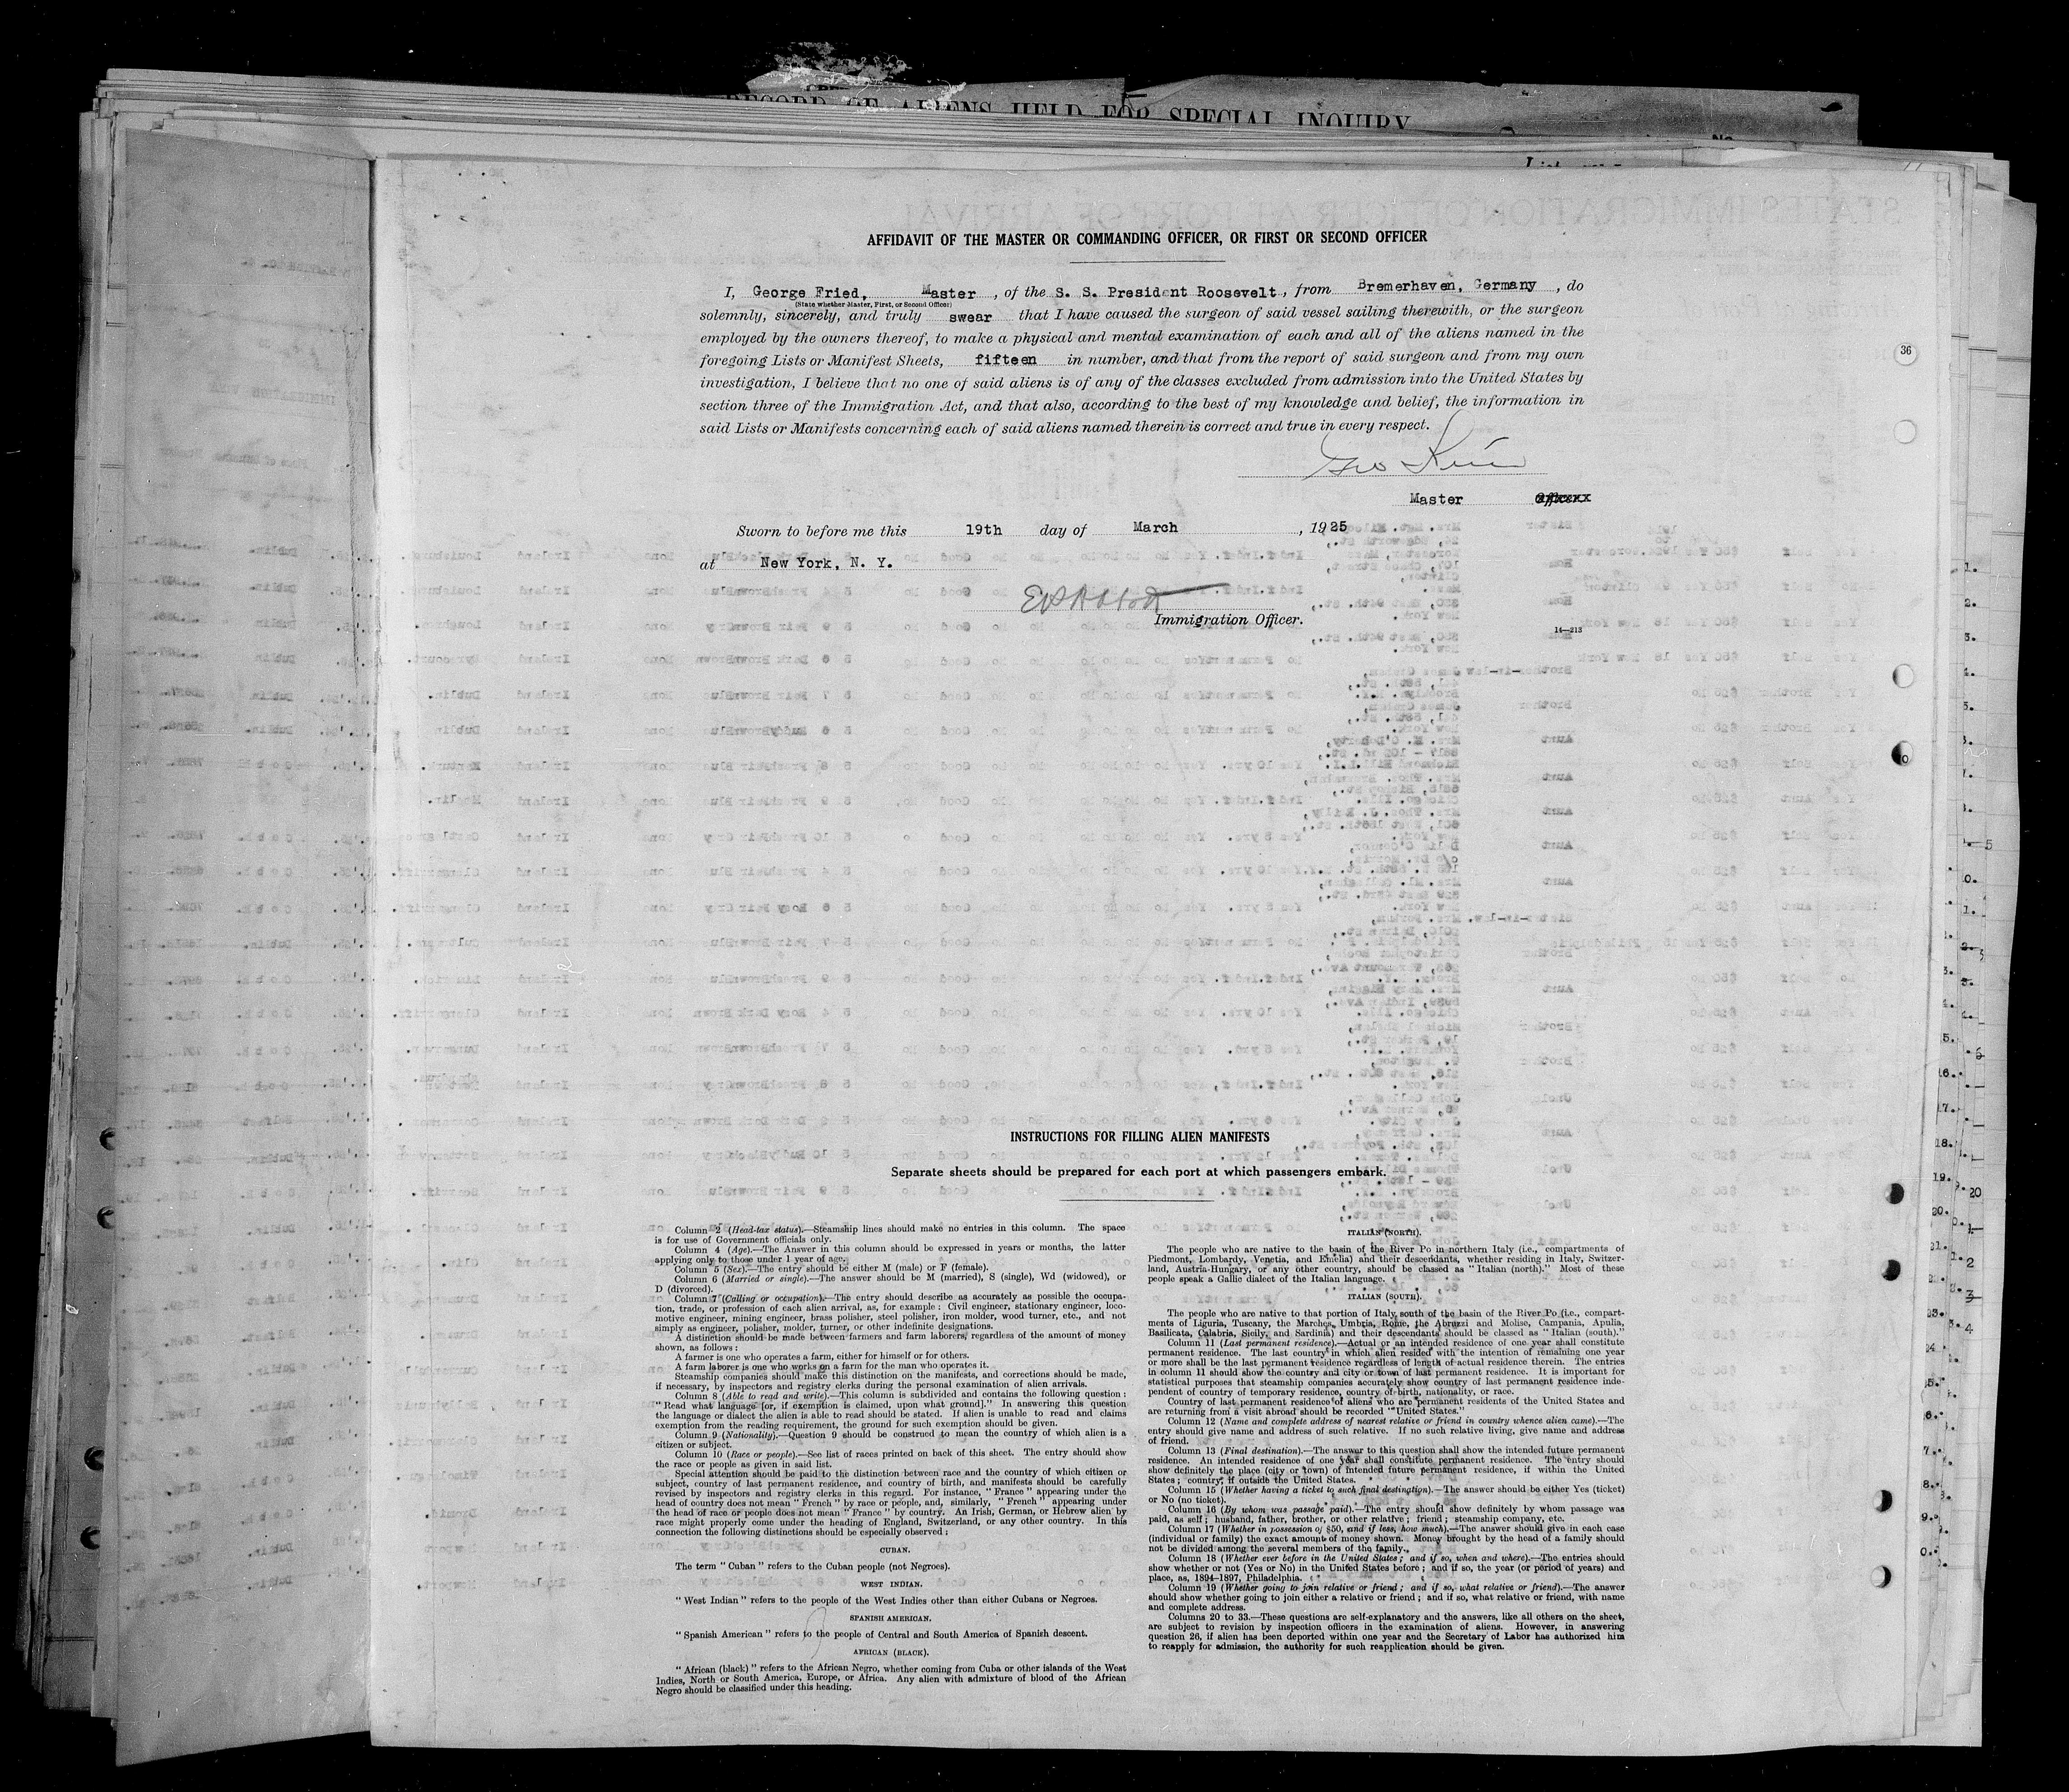 RECORD OF ALIENS HELD FOR SPECIAL INQUIRY
AFFIDAVIT OF THE MASTER OR COMMANDING OFFICER, OR FIRST OR SECOND OFFICER
I, George Fried, Master, of the S. S. President Roosevelt, from Bremerhaven, Germany, do
(State whether Master, First, or Second Officer)
solemnly, sincerely, and truly swear that I have caused the surgeon of said vessel sailing therewith, or the surgeon
employed by the owners thereof, to make a physical and mental examination of each and all of the aliens named in the
foregoing Lists or Manifest Sheets, fifteen in number, and that from the report of said surgeon and from my own
investigation, I believe that no one of said aliens is of any of the classes excluded from admission into the United States by
section three of the Immigration Act, and that also, according to the best of my knowledge and belief, the information in
said Lists or Manifests concerning each of said aliens named therein is correct and true in every respect.
36
Geo Fried
Master
Sworn to before me this 19th day of March, 1925
at New York, N. Y.
Immigration Officer.
14—213
INSTRUCTIONS FOR FILLING ALIEN MANIFESTS
Separate sheets should be prepared for each port at which passengers embark.
Column 2 (Head-tax status).—Steamship lines should make no entries in this column. The space
is for use of Government officials only.
Column 4 (Age).—The Answer in this column should be expressed in years or months, the latter
applying only to those under 1 year of age.
Column 5 (Sex).—The entry should be either M (male) or F (female).
Column 6 (Married or single).—The answer should be M (married), S (single), Wd (widowed), or
D (divorced).
Column 7 (Calling or occupation).—The entry should describe as accurately as possible the occupa-
tion, trade, or profession of each alien arrival, as, for example: Civil engineer, stationary engineer, loco-
motive engineer, mining engineer, brass polisher, steel polisher, iron molder, wood turner, etc., and not
simply as engineer, polisher, molder, turner, or other indefinite designations.
A distinction should be made between farmers and farm laborers, regardless of the amount of money
shown, as follows:
A farmer is one who operates a farm, either for himself or for others.
A farm laborer is one who works on a farm for the man who operates it.
Steamship companies should make this distinction on the manifests, and corrections should be made,
if necessary, by inspectors and registry clerks during the personal examination of alien arrivals.
Column 8 (Able to read and write).—This column is subdivided and contains the following question:
"Read what language [or, if exemption is claimed, upon what ground]." In answering this question
the language or dialect the alien is able to read should be stated. If alien is unable to read and claims
exemption from the reading requirement, the ground for such exemption should be given.
Column 9 (Nationality).—Question 9 should be construed to mean the country of which alien is a
citizen or subject.
Column 10 (Race or people).—See list of races printed on back of this sheet. The entry should show
the race or people as given in said list.
Special attention should be paid to the distinction between race and the country of which citizen or
subject, country of last permanent residence, and country of birth, and manifests should be carefully
revised by inspectors and registry clerks in this regard. For instance, "France" appearing under the
head of country does not mean "French" by race or people, and, similarly, "French" appearing under
the head of race or people does not mean "France" by country. An Irish, German, or Hebrew alien by
race might properly come under the heading of England, Switzerland, or any other country. In this
connection the following distinctions should be especially observed:
CUBAN.
The term "Cuban" refers to the Cuban people (not Negroes).
WEST INDIAN.
"West Indian" refers to the people of the West Indies other than either Cubans or Negroes.
SPANISH AMERICAN.
"Spanish American" refers to the people of Central and South America of Spanish descent.
AFRICAN (BLACK).
"African (black)" refers to the African Negro, whether coming from Cuba or other islands of the West
Indies, North or South America, Europe, or Africa. Any alien with admixture of blood of the African
Negro should be classified under this heading.
ITALIAN (NORTH).
The people who are native to the basin of the River Po in northern Italy (i.e., compartments of
Piedmont, Lombardy, Venetia, and Emelia) and their descendants, whether residing in Italy, Switzer-
land, Austria-Hungary, or any other country, should be classed as "Italian (north)." Most of these
people speak a Gallic dialect of the Italian language.
ITALIAN (SOUTH).
The people who are native to that portion of Italy south of the basin of the River Po (i.e., compart-
ments of Liguria, Tuscany, the Marches, Umbria, Rome, the Abruzzi and Molise, Campania, Apulia,
Basilicata, Calabria, Sicily, and Sardinia) and their descendants should be classed as "Italian (south)."
Column 11 (Last permanent residence).—Actual or an intended residence of one year shall constitute
permanent residence. The last country in which alien resided with the intention of remaining one year
or more shall be the last permanent residence regardless of length of actual residence therein. The entries
in column 11 should show the country and city or town of last permanent residence. It is important for
statistical purposes that steamship companies accurately show country of last permanent residence inde-
pendent of country of temporary residence, country of birth, nationality, or race.
Country of last permanent residence of aliens who are permanent residents of the United States and
are returning from a visit abroad should be recorded "United States."
Column 12 (Name and complete address of nearest relative or friend in country whence alien came).—The
entry should give name and address of such relative. If no such relative living, give name and address
of friend.
Column 13 (Final destination).—The answer to this question shall show the intended future permanent
residence. An intended residence of one year shall constitute permanent residence. The entry should
show definitely the place (city or town) of intended future permanent residence, if within the United
States; country, if outside the United States.
Column 15 (Whether having a ticket to such final destination).—The answer should be either Yes (ticket)
or No (no ticket).
Column 16 (By whom was passage paid).—The entry should show definitely by whom passage was
paid, as self; husband, father, brother, or other relative; friend; steamship company, etc.
Column 17 (Whether in possession of $50, and if less, how much).—The answer should give in each case
(individual or family) the exact amount of money shown. Money brought by the head of a family should
not be divided among the several members of the family.
Column 18 (Whether ever before in the United States; and if so, when and where).—The entries should
show whether or not (Yes or No) in the United States before; and if so, the year (or period of years) and
place, as, 1894–1897, Philadelphia.
Column 19 (Whether going to join relative or friend; and if so, what relative or friend).—The answer
should show whether going to join either a relative or friend; and if so, what relative or friend, with name
and complete address.
Columns 20 to 33.—These questions are self-explanatory and the answers, like all others on the sheet,
are subject to revision by inspection officers in the examination of aliens. However, in answering
question 26, if alien has been deported within one year and the Secretary of Labor has authorized him
to reapply for admission, the authority for such reapplication should be given.